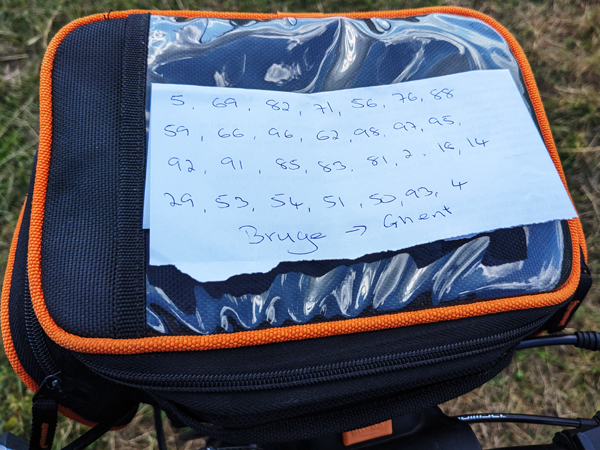 5, 69, 82, 71, 56, 76, 88
59, 66, 96, 62, 98, 97, 95,
92, 91, 85, 83, 81, 2, 18, 14
29, 53, 54, 51, 50, 93, 4
Bruge → Ghent